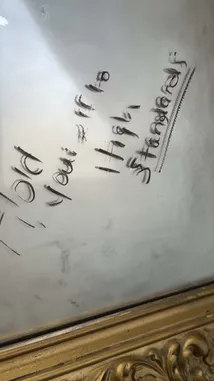 Hold
Yourself to
High
Standards